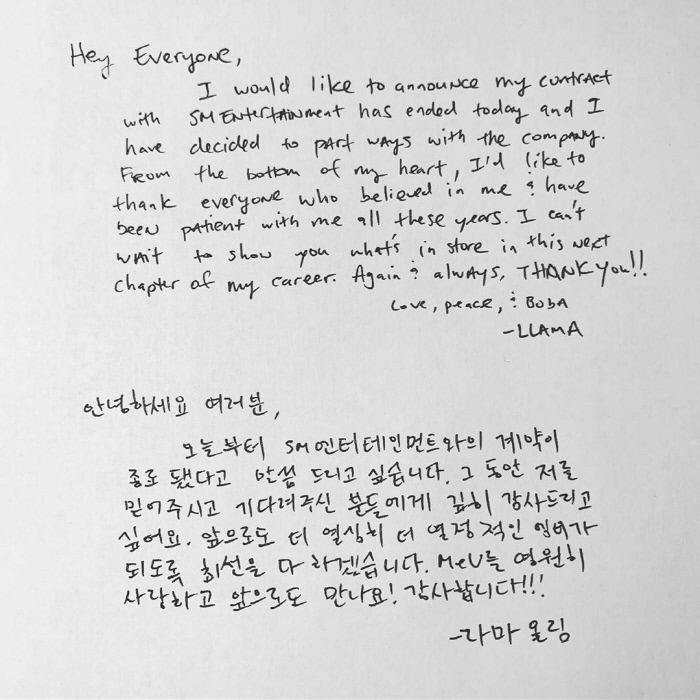 Hey Everyone,
I would like to announce my contract
with SM Entertainment has ended today and I
have decided to part ways with the company.
From the bottom of my heart, I'd like to
thank everyone who believed in me & have
been patient with me all these years. I can't
wait to show you what's in store in this next
chapter of my career. Again & always, THANK you!!
Love, peace, & BOBA
-LLAMA
안녕하세요 여러분,
오늘부터 SM엔터테인먼트와의 계약이
종료 됐다고 말씀 드리고 싶습니다. 그 동안 저를
믿어주시고 기다려주신 분들에게 깊히 감사드리고
싶어요. 앞으로도 더 열심히 더 열정적인 엠버가
되도록 최선을 다 하겠습니다. MeU들 영원히
사랑하고 앞으로도 만나요! 감사합니다!!!
-라마 올림